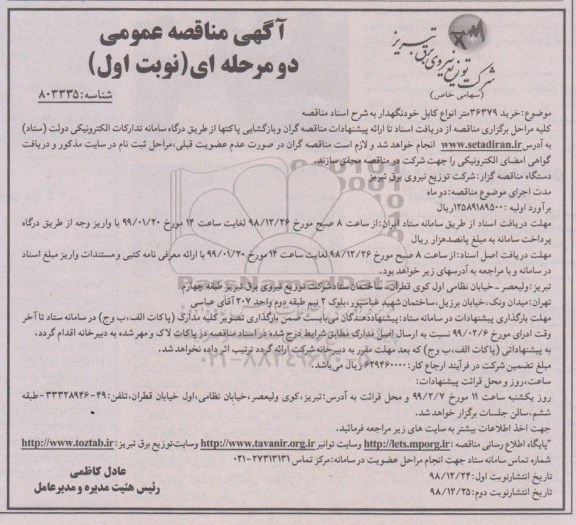 آگهی مناقصه عمومی
دو مرحله ای (نوبت اول)
شرکت توزیع نیروی برق تبریز
(سهامی خاص)
شناسه: ۸۰۳۳۳۵
موضوع: خرید ۳۶۳۷۹متر انواع کابل خودنگهدار به شرح اسناد مناقصه
کلیه مراحل برگزاری مناقصه از دریافت اسناد تا ارائه پیشنهادات مناقصه گران وبازگشایی پاکتها از طریق درگاه سامانه تدارکات الکترونیکی دولت (ستاد)
به آدرس www.setadiran.ir انجام خواهد شد و لازم است مناقصه گران در صورت عدم عضویت قبلی، مراحل ثبت نام در سایت مذکور و دریافت
گواهی امضای الکترونیکی را جهت شرکت در مناقصه محقق سازند.
دستگاه مناقصه گزار: شرکت توزیع نیروی برق تبریز
مدت اجرای موضوع مناقصه: دو ماه
برآورد اولیه: ۱۲۵۸۹۱۸۹۵۰۰ریال
مهلت دریافت اسناد از طریق سامانه ستاد ایران: از ساعت ۸ صبح مورخ ۹۸/۱۲/۲۶ لغایت ساعت ۱۴ مورخ ۹۹/۰۱/۲۰ با واریز وجه از طریق درگاه
پرداخت سامانه به مبلغ پانصدهزار ریال
مهلت دریافت اصل اسناد: از ساعت ۸ صبح مورخ ۹۸/۱۲/۲۶ لغایت ساعت ۱۴ مورخ ۹۹/۰۱/۲۰ با ارائه معرفی نامه کتبی و مستندات واریز مبلغ اسناد
در سامانه و با مراجعه به آدرسهای زیر خواهد بود.
تبریز: ولیعصر - خیابان نظامی اول کوی قطران - ساختمان ستاد شرکت توزیع نیروی برق تبریز طبقه چهارم
تهران: میدان ونک، خیابان برزیل، ساختمان شهید عباسپور، بلوک ۲ نیم طبقه دوم واحد ۲۰۷ آقای عباسی
مهلت بارگذاری پیشنهادات در سامانه ستاد: پیشنهاددهندگان می بایست ضمن بارگذاری تصویر کلیه مدارک (پاکات الف، ب وج) در سامانه ستاد تا آخر
وقت اداری مورخ ۹۹/۰۲/۶ نسبت به ارسال اصل مدارک مطابق شرایط درج شده در اسناد مناقصه در پاکات لاک و مهر شده به دبیرخانه اقدام گردد.
به پیشنهاداتی (پاکات الف، ب وج) که بعد مهلت مقرر به دبیرخانه شرکت ارائه گردد ترتیب اثر داده نخواهد شد.
مبلغ تضمین شرکت در فرآیند ارجاع کار: ۶۲۹۴۶۰۰۰۰ ریال می باشد.
ساعت، روز و محل قرائت پیشنهادات:
روز یکشنبه ساعت ۱۱ مورخ ۹۹/۲/۷ و محل قرائت به آدرس: تبریز، کوی ولیعصر، خیابان نظامی، اول خیابان قطران، تلفن: ۴۹-۳۳۳۲۸۹۴۶-طبقه
ششم، سالن جلسات برگزار خواهد شد.
جهت اخذ اطلاعات بیشتر به سایت های زیر مراجعه فرمائید.
"پایگاه اطلاع رسانی مناقصه: http://iets.mporg.ir وسایت توانیر http://www.tavanir.org.ir وسایت توزیع برق تبریز: http://www.toztab.ir
شماره تماس سامانه ستاد جهت انجام مراحل عضویت در سامانه: مرکز تماس ۲۷۳۱۳۱۳۱-۰۲۱
تاریخ انتشارنوبت اول: ۹۸/۱۲/۲۴
تاریخ انتشارنوبت دوم: ۹۸/۱۲/۲۵
عادل کاظمی
رئیس هئیت مدیره و مدیرعامل